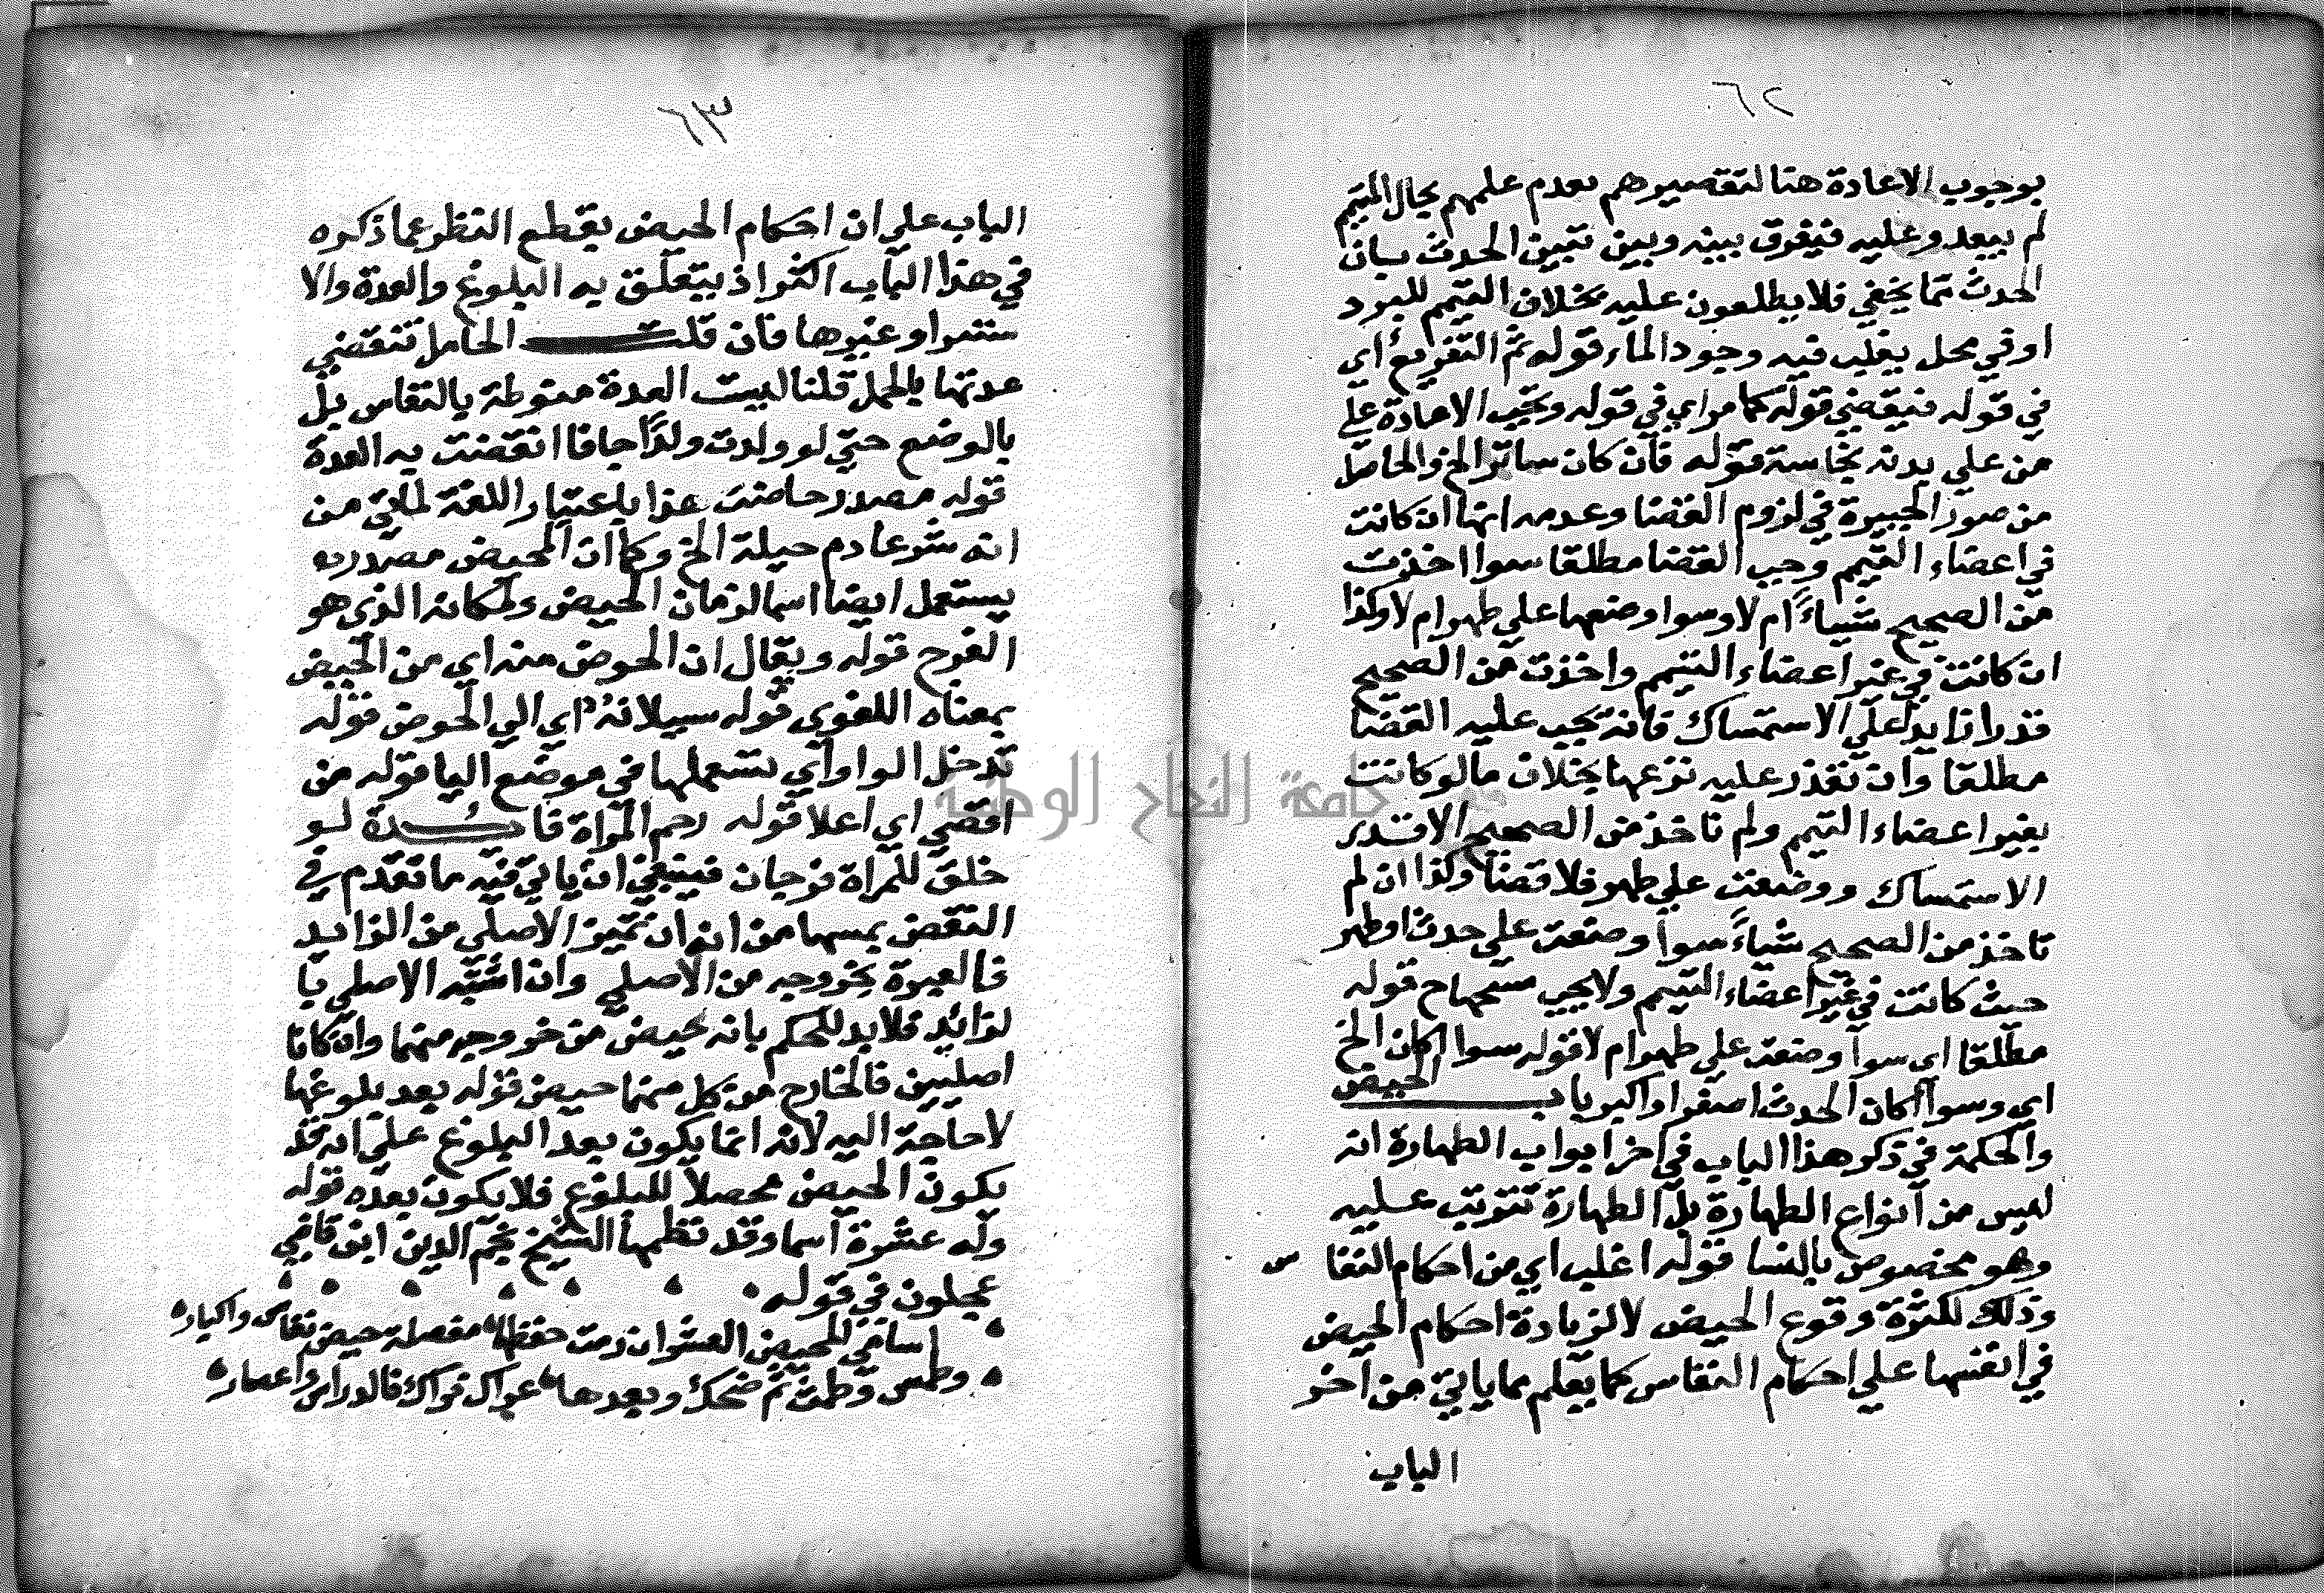 ٦٢
بوجوب الاعادة هنا لتقصيرهم بعدم علمهم بحال المتيمم
لم يبعد وعليه فيفرق بينه وبين تبين الحدث بان
الحدث مما يخفي فلا يطلعون عليه بخلاف التيمم للبرد
او في محل يغلب فيه وجود الماء قوله ثم التفريع اي
في قوله فيقضي قوله كما مر اي في قوله وتجب الاعادة علي
من علي بدنه نجاسة قوله فان كان ساترا الخ والحاصل
من صور الجبيرة في لزوم القضا وعدمه انها ان كانت
في اعضاء التيمم وجب القضا مطلقا سوا اخذت
من الصحيح شياءً ام لا وسوا وضعها علي طهر ام لا وكذا
ان كانت في غير اعضاء التيمم واخذت من الصحيح
قدرا زايد علي الاستمساك فانه تجب عليه القضا
مطلقا وان تعذر عليه نزعها بخلاف ما لو كانت
بغير اعضاء التيمم ولم تاخذ من الصحيح الا قدر
الاستمساك ووضعت علي طهر فلا قضا وكذا ان لم
تاخذ من الصحيح شياءً سوا وضعت علي حدث او طهر
حيث كانت في غير اعضاء التيمم ولا يجب مسحها ح قوله
مطلقا اي سوا وضعت علي طهر ام لا قوله سوا اكان الخ
اي وسوا أكان الحدث اصغر او اكبر باب الحيض
والحكمة في ذكر هذا الباب في اخر ابواب الطهارة انه
ليس من انواع الطهارة بل الطهارة تترتب عليه
وهو مخصوص بالنسا قوله اغلب اي من احكام النفاس
وذلك لكثرة وقوع الحيض لا لزيادة احكام الحيض
في انفسها علي احكام النفاس كما يعلم مما ياتي من اخر
الباب
٦٣
الباب علي ان احكام الحيض بقطع النظر عما ذكره
في هذا الباب اكثر اذ يتعلق به البلوغ والعدة والا
ستبرا وغيرها فان قلت الحامل تنقضي
عدتها بالحمل قلنا ليست العدة منوطة بالنفاس بل
بالوضع حتي لو ولدت ولدًا جافا انقضت به العدة
قوله مصدر حاضت هذا باعتبار اللغة لماتي من
انه شرعا دم جبلة الخ وكما ان المحيض مصدره
يستعمل ايضا اسما لزمان الحيض ولمكانه الذي هو
الفرج قوله ويقال ان الحوض منه اي من الحيض
بمعناه اللغوي قوله سيلانه اي الي الحوض قوله
تدخل الواو اي تستعملها في موضع اليا قوله من
اقصي اي اعلا قوله رحم المراة فايدة لو
خلق للمراة فرجان فينبغي ان ياتي فيه ما تقدم في
النقض بمسها من انه ان تميز الاصلي من الزايد
فالعبرة بخروجه من الاصلي وان اشتبه الاصلي با
لزائد فلابد للحكم بانه حيض من خروجه منهما وان كانا
اصليين فالخارج من كل منهما حيض قوله بعد بلوغها
لا حاجة اليه لانه انما يكون بعد البلوغ علي انه قد
يكون الحيض محصلا للبلوغ فلا يكون بعده قوله
وله عشرة اسما وقد نظمها الشيخ نجم الدين ابن قاضي
عجلون في قوله
اسامي للمحيض العشر ان رمت حفظها مفصلة حيض نفاس واكباره
وطمس وطمث ثم ضحك وبعدها عراك فراك فالدراس واعصاره
جامعة النجاح الوطنية